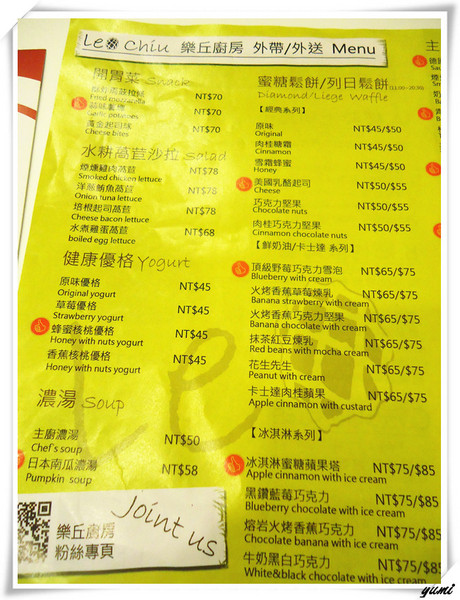 Le Chiu 樂丘廚房 外帶/外送 Menu
開胃菜 Snack
Fried mozzarella NT$70
Garlic potatoes NT$70
黃金起司球
Cheese bites NT$70
水耕萵苣沙拉 Salad
煙燻雞肉萵苣
Smoked chicken lettuce NT$78
洋蔥鮪魚萵苣
Onion tuna lettuce NT$78
培根起司萵苣
Cheese bacon lettuce NT$78
水煮雞蛋萵苣
boiled egg lettuce NT$68
健康優格 Yogurt
原味優格
Original yogurt NT$45
草莓優格
Strawberry yogurt NT$45
蜂蜜核桃優格
Honey with nuts yogurt NT$45
香蕉核桃優格
Honey with nuts yogurt NT$45
濃湯 Soup
主廚濃湯
Chef's soup NT$50
日本南瓜濃湯
Pumpkin soup NT$58
樂丘廚房
粉絲專頁
Joint us
蜜糖鬆餅/列日鬆餅
Diamond/Liege Waffle
【經典系列】
原味
Original NT$45/$50
肉桂糖霜
Cinnamon NT$45/$50
雪霜蜂蜜
Honey NT$45/$50
美國乳酪起司
Cheese NT$50/$55
巧克力堅果
Chocolate nuts NT$50/$55
肉桂巧克力堅果
Cinnamon chocolate nuts NT$50/$55
【鮮奶油/卡士達 系列】
頂級野莓巧克力雪泡
Blueberry with cream NT$65/$75
火烤香蕉草莓煉乳
Banana strawberry with cream NT$65/$75
火烤香蕉巧克力堅果
Banana chocolate with cream NT$65/$75
抹茶紅豆煉乳
Red beans with mocha cream NT$65/$75
花生先生
Peanut with cream NT$65/$75
卡士達肉桂蘋果
Apple cinnamon with custard NT$65/$75
【冰淇淋系列】
冰淇淋蜜糖蘋果塔
Apple cinnamon with ice cream NT$75/$85
黑鑽藍莓巧克力
Blueberry chocolate with ice cream NT$75/$85
熔岩火烤香蕉巧克力
Chocolate banana with ice cream NT$75/$85
牛奶黑白巧克力
White&black chocolate with ice cream NT$75/$85
yumi